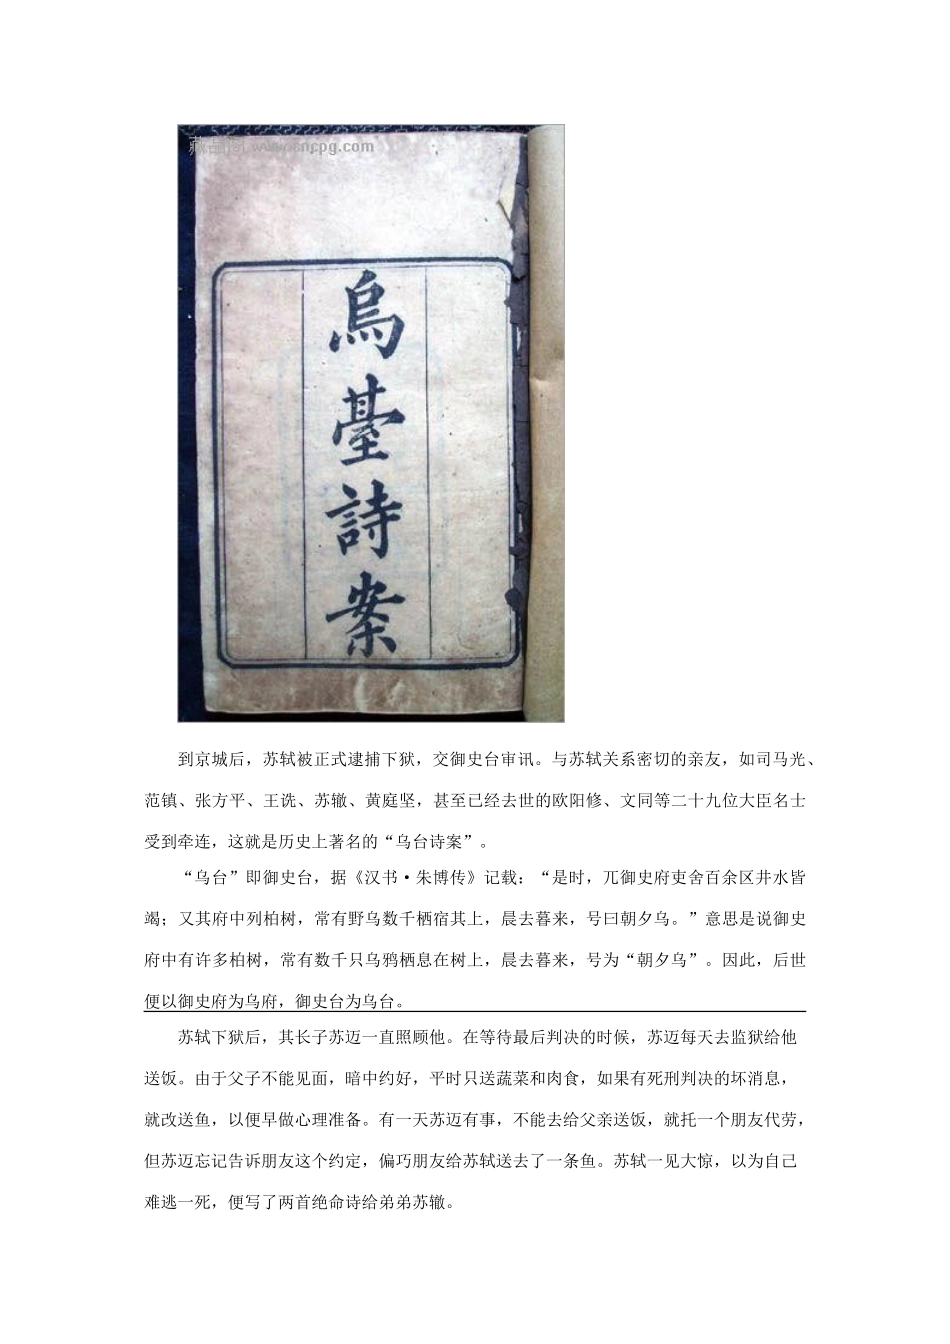 www.sncpg.com
烏
臺
詩
案
到京城后，苏轼被正式逮捕下狱，交御史台审讯。与苏轼关系密切的亲友，如司马光、
范镇、张方平、王诜、苏辙、黄庭坚，甚至已经去世的欧阳修、文同等二十九位大臣名士
受到牵连，这就是历史上著名的“乌台诗案”。
“乌台”即御史台，据《汉书·朱博传》记载：“是时，兀御史府吏舍百余区井水皆
竭；又其府中列柏树，常有野乌数千栖宿其上，晨去暮来，号曰朝夕乌。”意思是说御史
府中有许多柏树，常有数千只乌鸦栖息在树上，晨去暮来，号为“朝夕乌”。因此，后世
便以御史府为乌府，御史台为乌台。
苏轼下狱后，其长子苏迈一直照顾他。在等待最后判决的时候，苏迈每天去监狱给他
送饭。由于父子不能见面，暗中约好，平时只送蔬菜和肉食，如果有死刑判决的坏消息，
就改送鱼，以便早做心理准备。有一天苏迈有事，不能去给父亲送饭，就托一个朋友代劳，
但苏迈忘记告诉朋友这个约定，偏巧朋友给苏轼送去了一条鱼。苏轼一见大惊，以为自己
难逃一死，便写了两首绝命诗给弟弟苏辙。